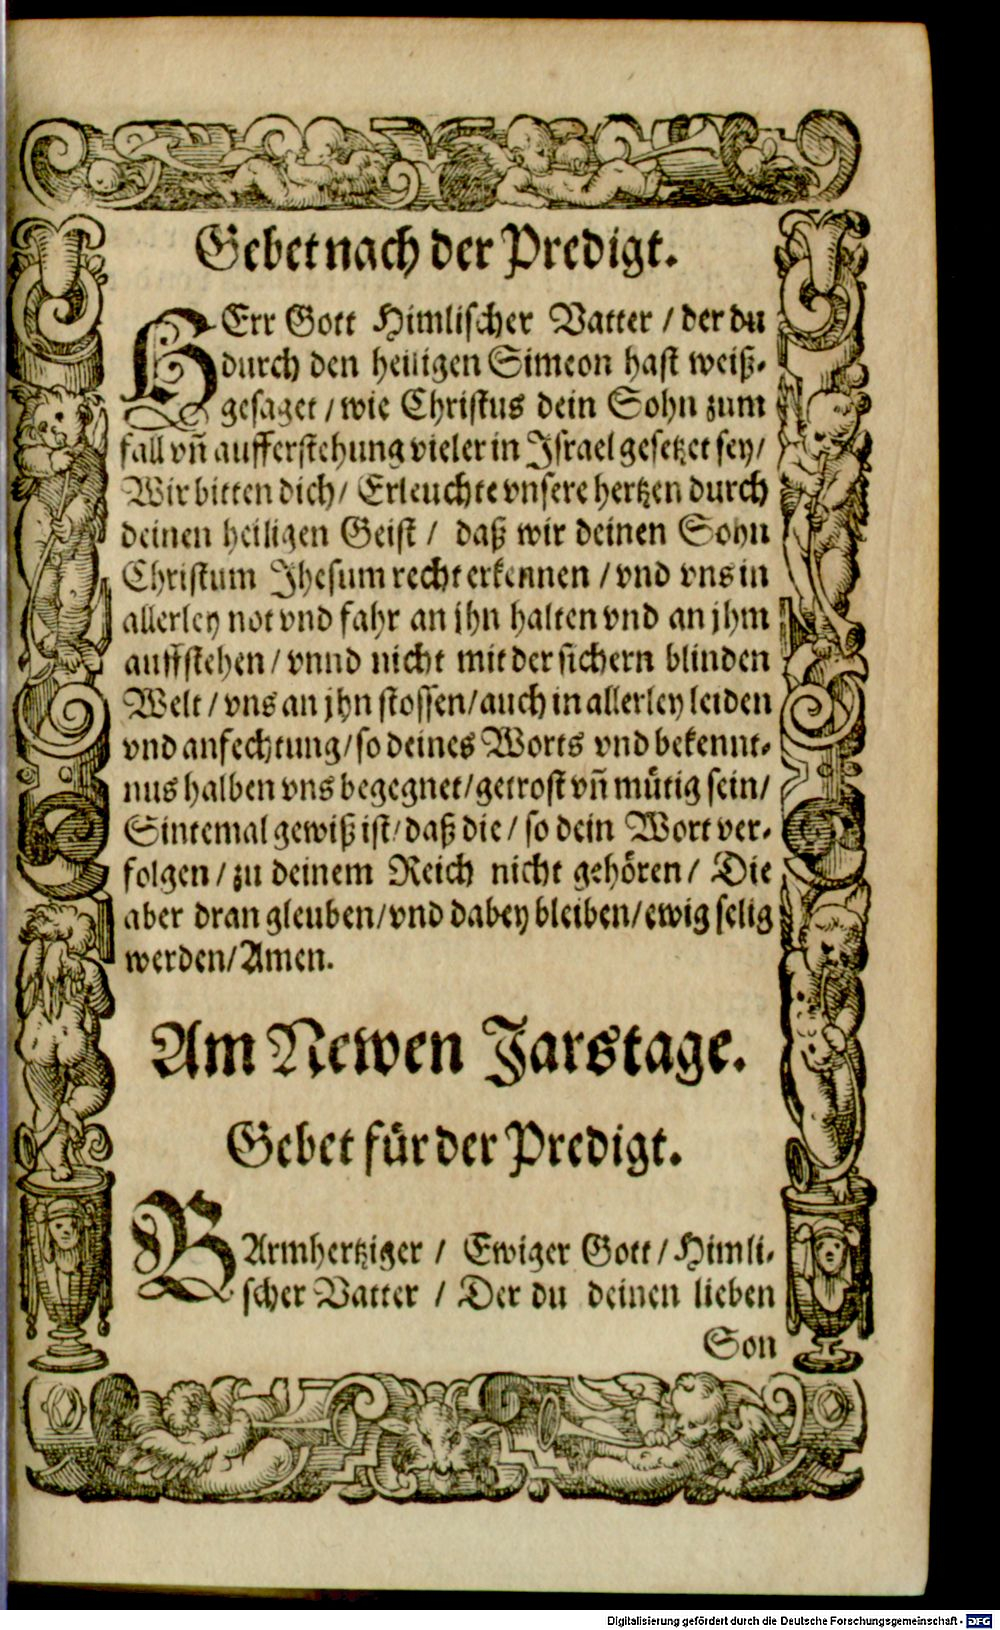 Gebet nach der Predigt.
HErr Gott Himlischer Vatter / der du
durch den heiligen Simeon hast weiß-
gesaget / wie Christus dein Sohn zum
fall vñ aufferstehung vieler in Israel gesetzet sey/
Wir bitten dich/ Erleuchte vnsere hertzen durch
deinen heiligen Geist / daß wir deinen Sohn
Christum Jhesum recht erkennen / vnd vns in
allerley not vnd fahr an jhn halten vnd an jhm
auffstehen / vnnd nicht mit der sichern blinden
Welt / vns an jhn stossen/ auch in allerley leiden
vnd anfechtung/ so deines Worts vnd bekennt-
nus halben vns begegnet/ getrost vñ mütig sein/
Sintemal gewiß ist/ daß die / so dein Wort ver-
folgen / zu deinem Reich nicht gehören / Die
aber dran gleuben/ vnd dabey bleiben/ ewig selig
werden/ Amen.
Am Newen Jarstage.
Gebet für der Predigt.
BArmhertziger / Ewiger Gott / Himli-
scher Vatter / Der du deinen lieben
Son
Digitalisierung gefördert durch die Deutsche Forschungsgemeinschaft - DFG